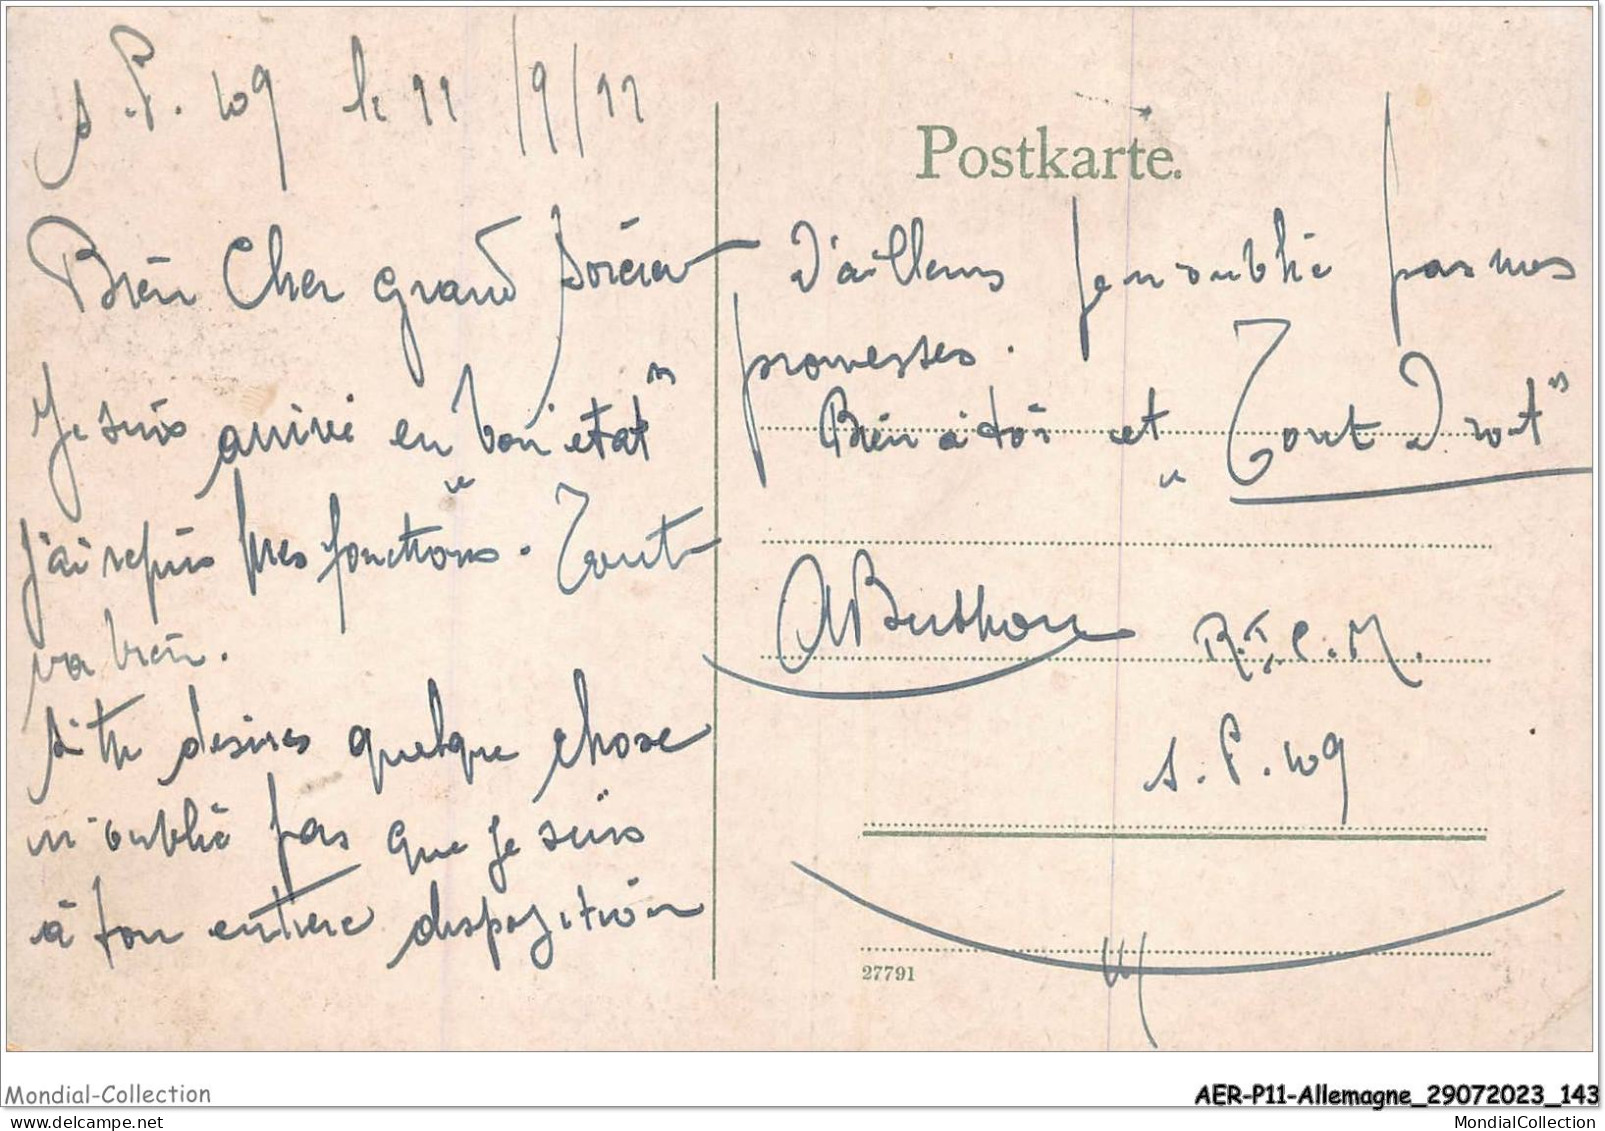 S.P. 109 le 11/9/22
Bien Cher grand Sorcier
Je suis arrivé en "bon état"
j'ai repris mes fonctions. Tout
va bien.
Si tu desires quelque chose
n'oublie pas que je suis
à ton entiere disposition
Postkarte.
D'ailleurs je n'oublie pas mes
promesses.
Bien à toi et "Tout Droit"
R.I.C.M.
S.P. 109
27791
Mondial-Collection
AER-P11-Allemagne_29072023_143
MondialCollection
MondialCollection